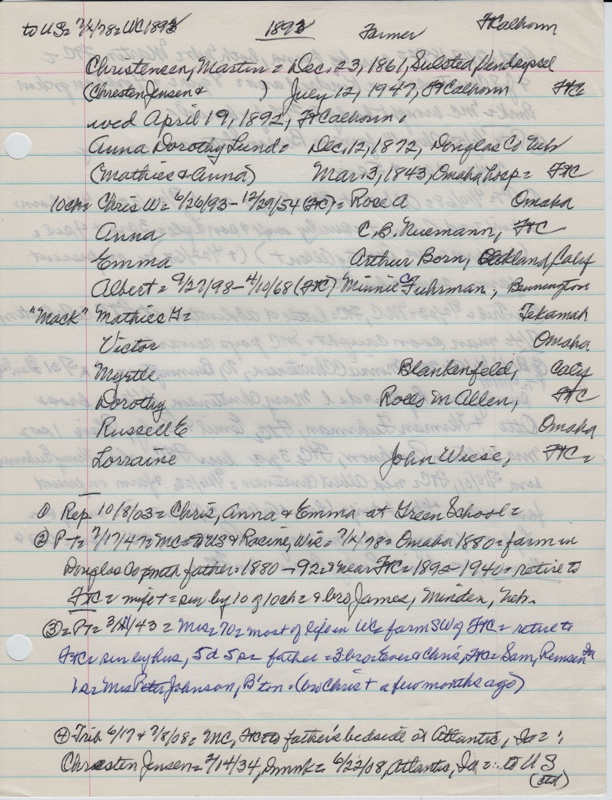 to US = 7/4/78 = WC 1893 1893 Farmer FtCalhoun
Christensen, Martin = Dec. 23, 1861,
(Chresten Jensen & ) July 12, 1947, FtCalhoun FtC
wed April 19, 1892, FtCalhoun.
Anna Dorothy Lund = Dec. 12, 1872, Douglas Co Neb
(Mathies & Anna) Mar. 3, 1943, Omaha hosp = FtC
10ch = Chris W = 6/26/93 - 12/29/54 (FtC) = Rose A Omaha
Anna C. B. Niemann, FtC
Emma Arthur Born, Oakland, Calif
Albert = 9/27/98 - 4/10/68 (FtC) Minnie C Fuhrman, Bennington
"Mack" Mathies H = Tekamah
Victor Omaha
Myrtle Blankenfeld, Calif
Dorothy Rolls M Allen, FtC
Russell E Omaha
Lorraine John Wiese, FtC =
① Rep 10/8/03 = Chris, Anna & Emma at Green School =
② P-T = 7/17/47 = MC = US & Racine, Wis = 7/4/78 = Omaha 1880 = farm in
Douglas Co with father = 1880 - 92 = near FtC = 1892 - 1940 = retire to
FtC = wife + = sur by 10 of 10ch = & bro James, Minden, Neb.
③ = PT = 3/11/43 = Mrs = 70 = most of life in WC = farm SW of FtC = retire to
FtC = sur by hus, 5d 5s = father = 3bro = & Chris, FtC = Sam, Remsen Ia
1s = Mrs Peter Johnson, B'ton = (bro Christ + a few months ago)
④ Trib 6/17 & 7/8/08 = MC, FtC to father's bedside at Atlantic, Ia = :
Chresten Jensen = 2/14/34, Dmk = 6/22/08, Atlantic, Ia = : to US
(ctd)